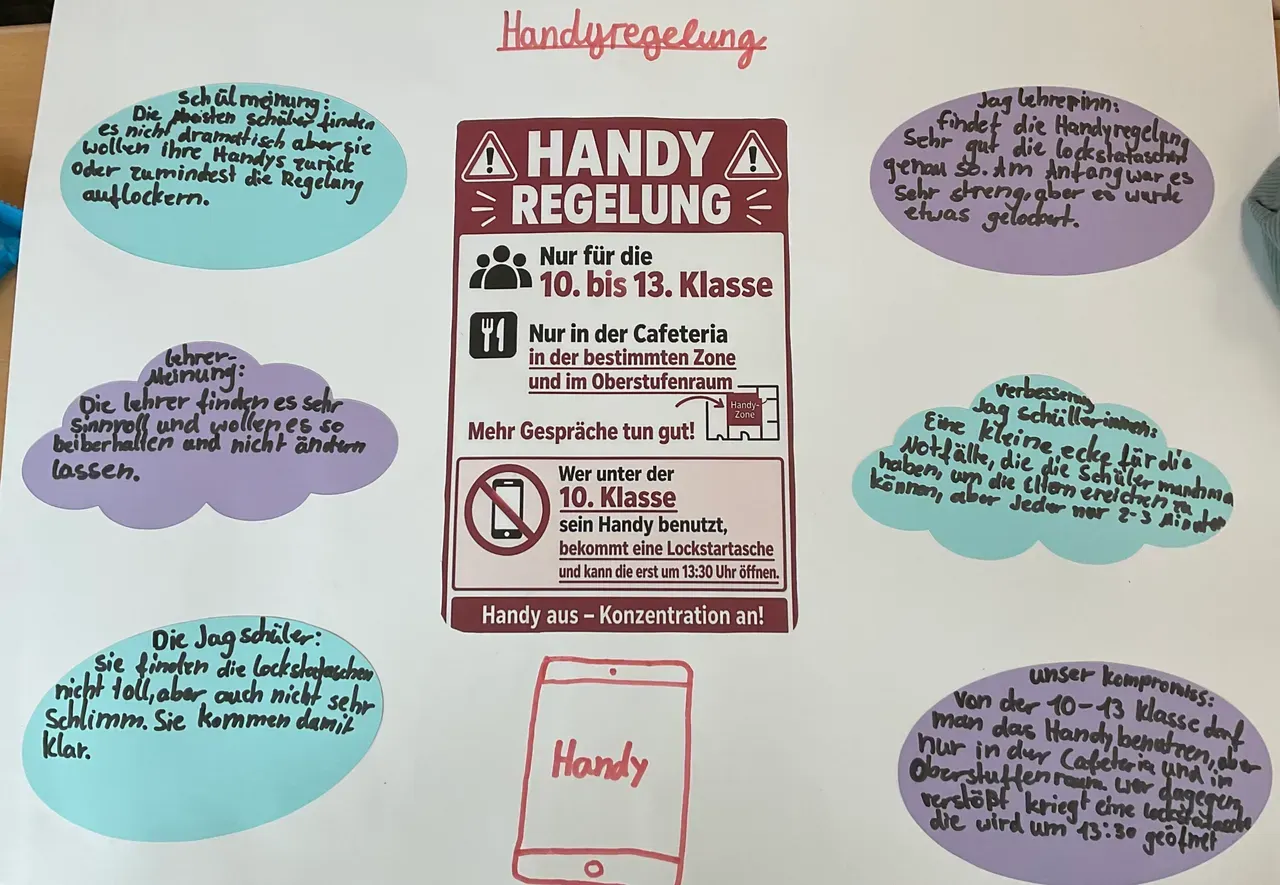 Handyregelung
Schülmeinung:
Die meisten schüler finden
es nicht dramatisch aber sie
wollen ihre Handys zurück
oder zumindest die Regelung
auflockern.
Lehrer-
Meinung:
Die lehrer finden es sehr
sinnvoll und wollen es so
beiberhalten und nicht ändern
lassen.
Die Jag schüler:
Sie finden die lockstataschen
nicht toll, aber auch nicht sehr
Schlimm. Sie kommen damit
klar.
HANDY
REGELUNG
Nur für die
10. bis 13. Klasse
Nur in der Cafeteria
in der bestimmten Zone
und im Oberstufenraum
Handy-
Zone
Mehr Gespräche tun gut!
Wer unter der
10. Klasse
sein Handy benutzt,
bekommt eine Lockstartasche
und kann die erst um 13:30 Uhr öffnen.
Handy aus – Konzentration an!
Handy
Jag lehrerinn:
findet die Handyregelung
Sehr gut die lockstataschen
genau so. Am Anfang war es
sehr streng, aber es wurde
etwas gelockert.
verbesserung
Jag schüllerinnen:
Eine kleine ecke für die
Notfälle, die die Schüler manchma
haben, um die Eltern ereichen zu
können, aber Jeder nur 2-3 Minuten
unser kompromiss:
von der 10-13 Klasse darf
man das Handy benutzen, aber
nur in der Cafeteria und im
Oberstuffenraum. wer dagegen
verstößt kriegt eine lockstatasche
die wird um 13:30 geöfnet